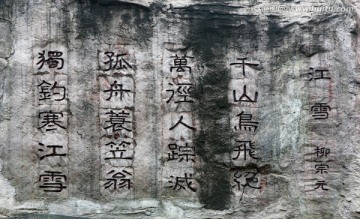 江雪 柳宗元
千山鳥飛絕
萬徑人踪滅
孤舟蓑笠翁
獨釣寒江雪